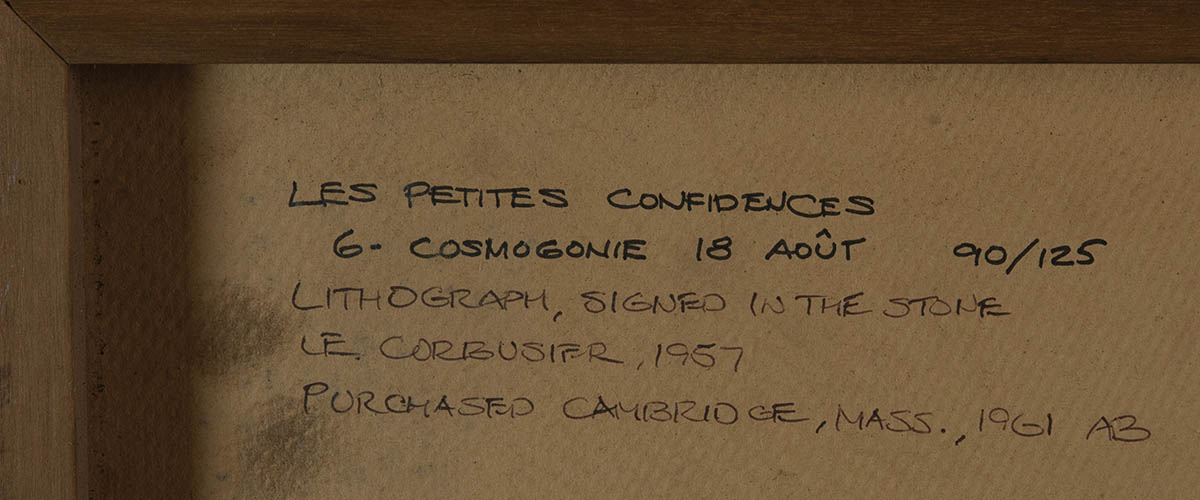 LES PETITES CONFIDENCES
6- COSMOGONIE 18 AOÛT 90/125
LITHOGRAPH, SIGNED IN THE STONE
LE CORBUSIER, 1957
PURCHASED CAMBRIDGE, MASS., 1961 AB